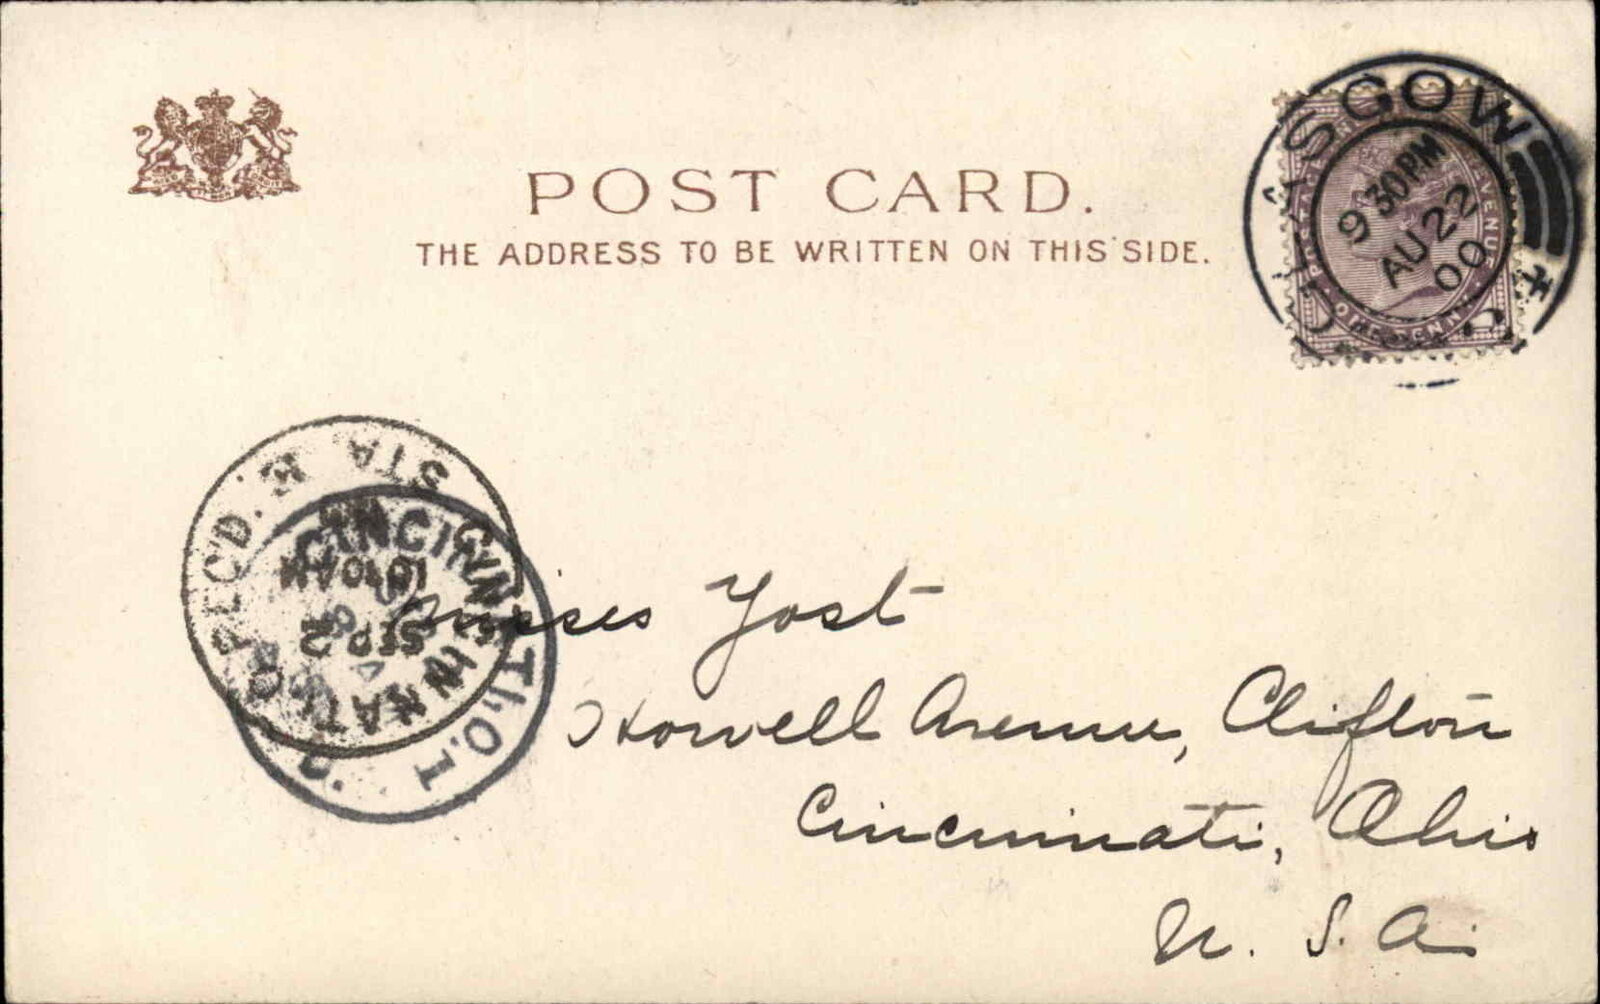 POST CARD.
THE ADDRESS TO BE WRITTEN ON THIS SIDE.
GLASGOW
9 30PM
AU 22
00
POSTAGE REVENUE
ONE PENNY
REC'D.
STA
CINCINNATI, O.
CINCINNATI, O.
10 AM
SEP 2
Misses Yost
Howell Avenue, Clifton
Cincinnati, Ohio
U. S. A.